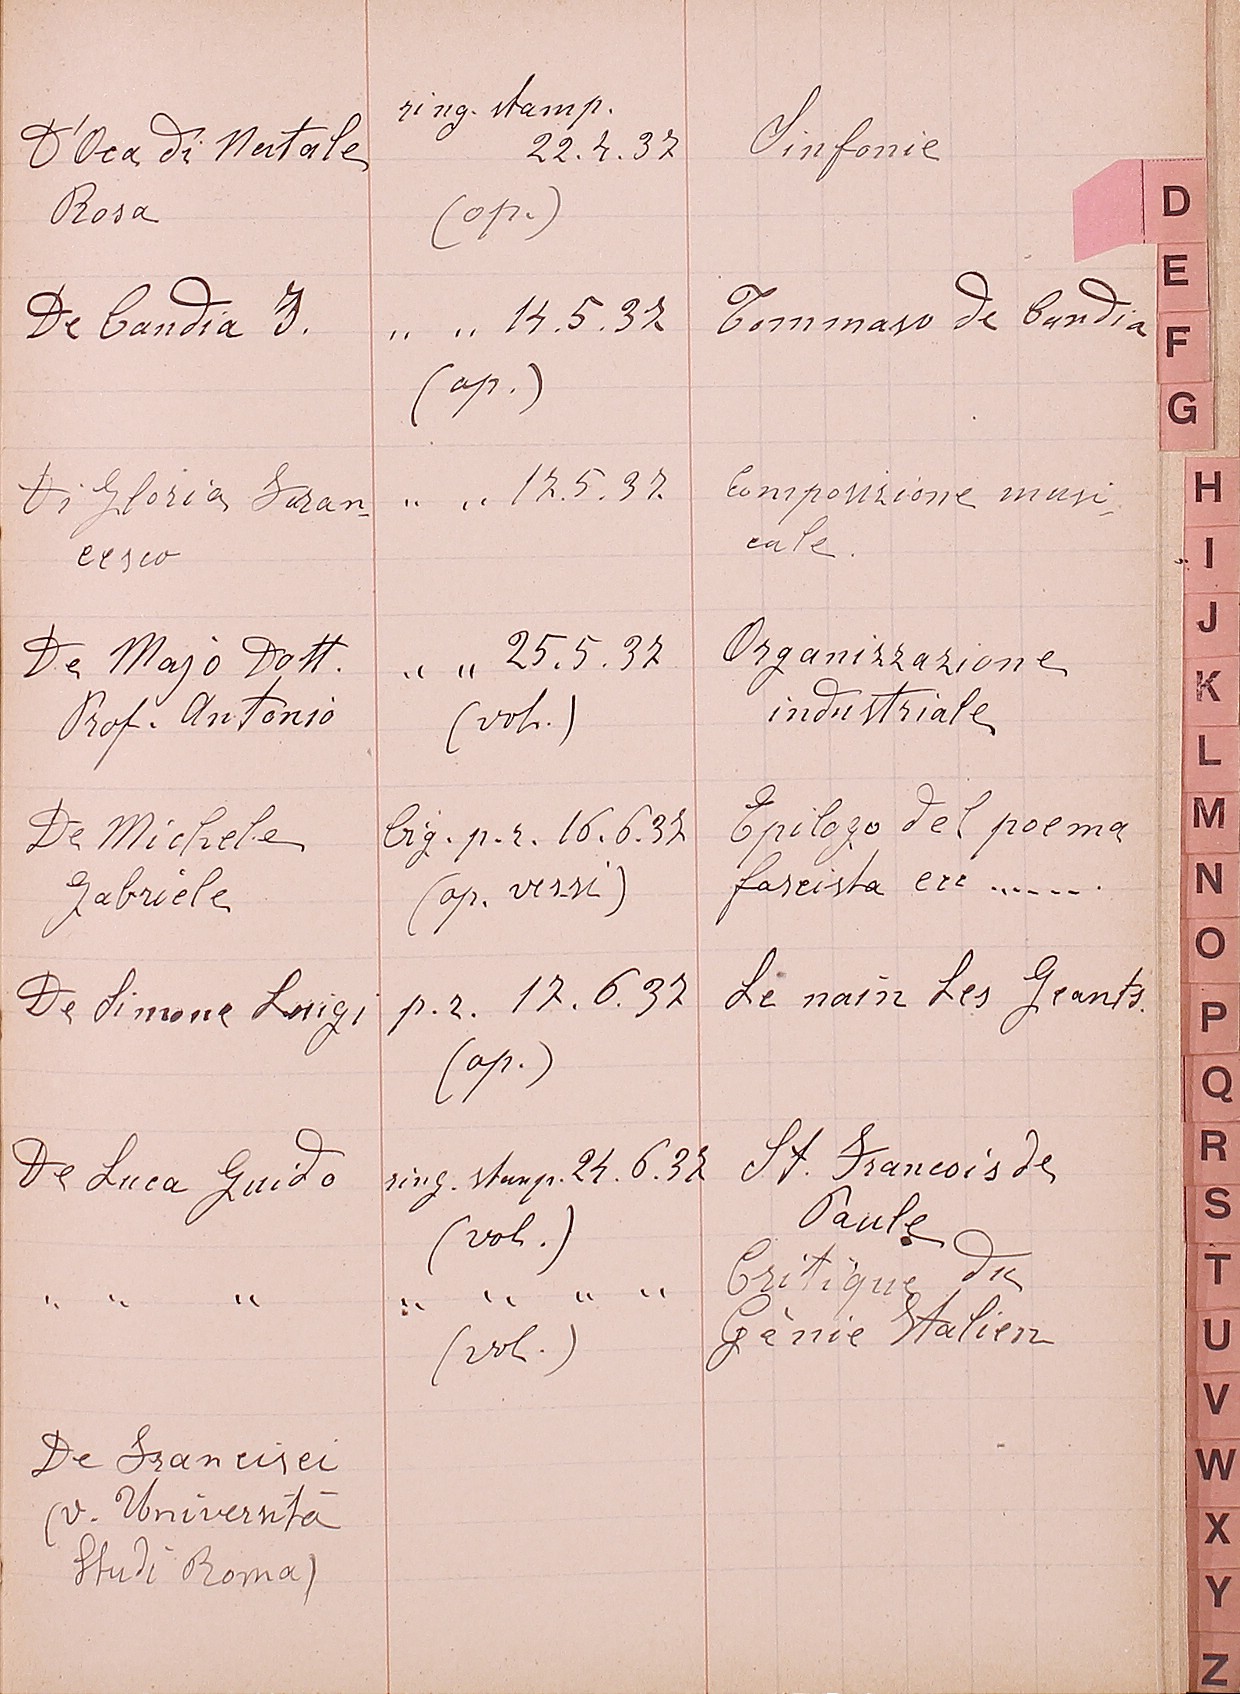 D'Oca di Natale ring. stamp. 22.4.32 Sinfonie
Rosa (op.)
De Candia F. " " 14.5.32 Tommaso de Candia
(op.)
Di Gloria Fran- " " 17.5.32 Composizione musi-
cesco cale.
De Majo Dott. " " 25.5.32 Organizzazione
Prof. Antonio (vol.) industriale
De Michele big. p.r. 16.6.32 Epilogo del poema
Gabriele (op. versi) fascista ecc ......
De Simone Luigi p.r. 17.6.32 Le nain Les Geants.
(op.)
De Luca Guido ring. stamp. 24.6.32 St. Francois de
(vol.) Paule
" " " " " " " Critique du
(vol.) Gènie Italien
De Francisci
(v. Università
Studi Roma)
D
E
F
G
H
I
J
K
L
M
N
O
P
Q
R
S
T
U
V
W
X
Y
Z